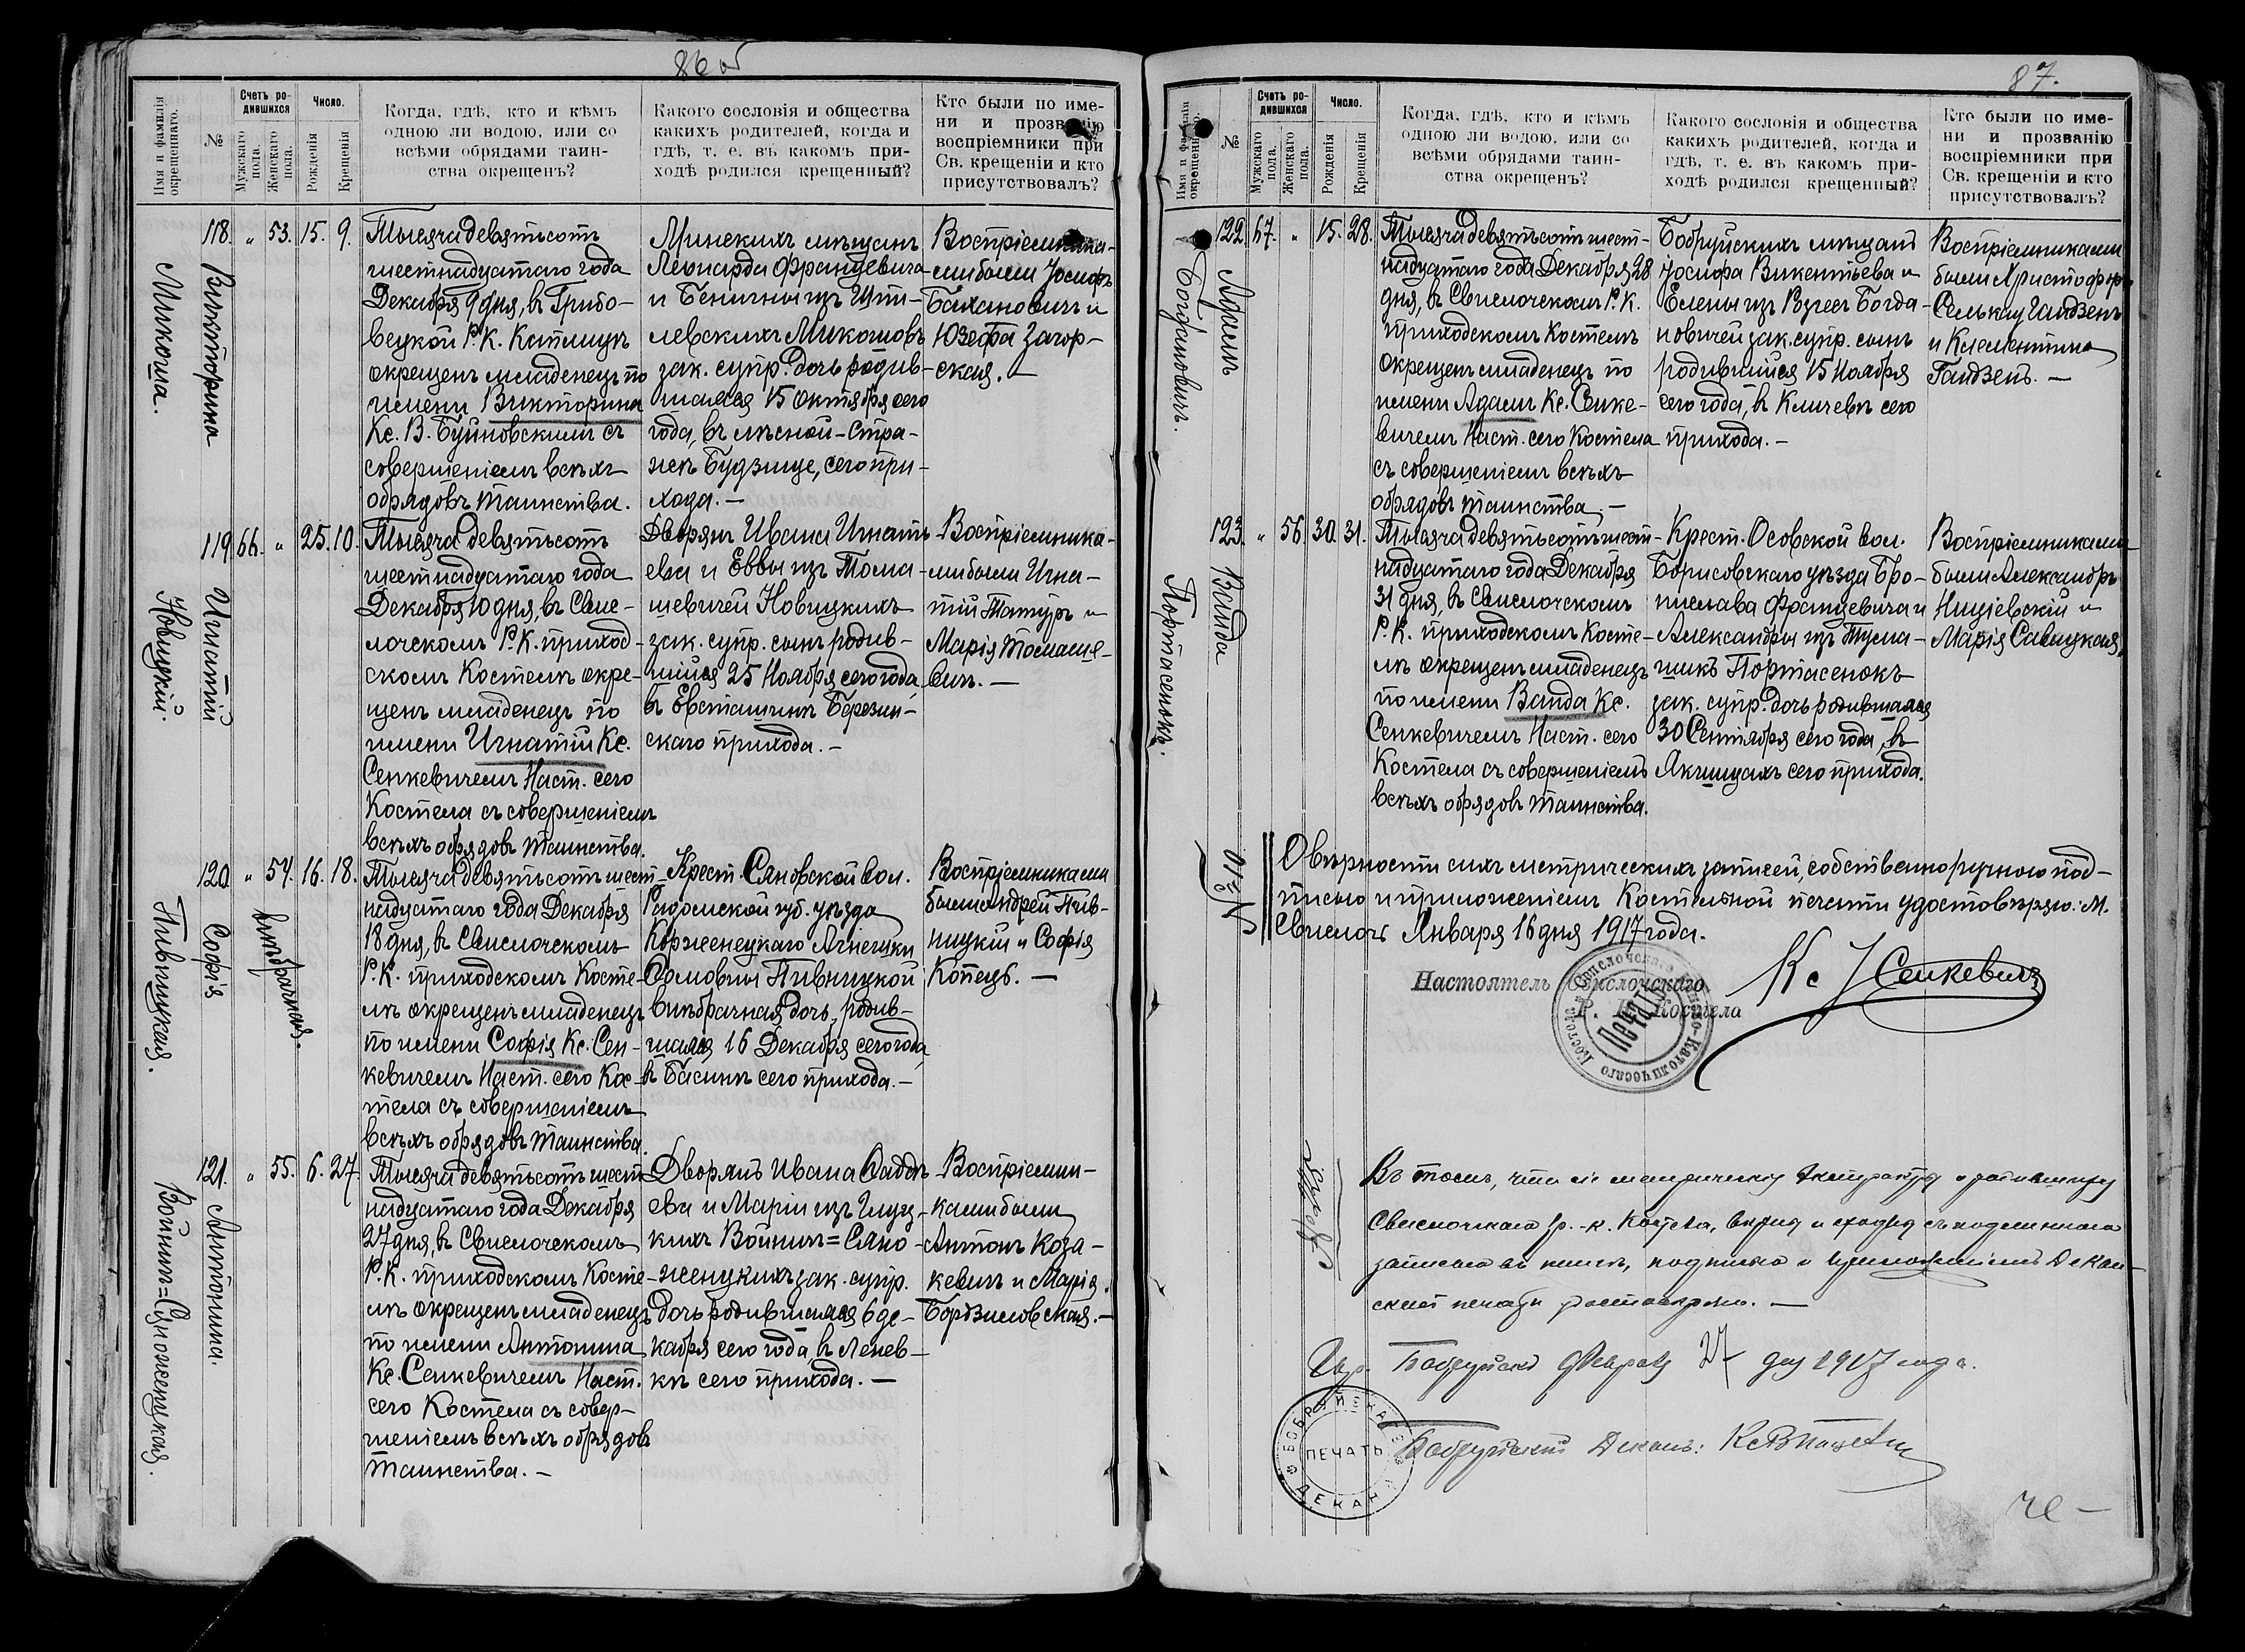 86об
Имя и фамилія
окрещеннаго.
№
Счетъ ро-
дившихся
Мужскаго
пола.
Женскаго
пола.
Число.
Рожденія
Крещенія
Когда, гдѣ, кто и кѣмъ
одною ли водою, или со
всѣми обрядами таин-
ства окрещенъ?
Какого сословія и общества
какихъ родителей, когда и
гдѣ, т. е. въ какомъ при-
ходѣ родился крещенный?
Кто были по име-
ни и прозванію
воспріемники при
Св. крещеніи и кто
присутствовалъ?
Викторина
Микоша.
118. " 53. 15. 9.
Тысяча девятьсотъ
шестнадцатаго года
Декабря 9 дня, въ Грибо-
вецкой Р. К. Каплицѣ
окрещенъ младенецъ по
имени Викторина
Кс. В. Буйновскимъ съ
совершеніемъ всѣхъ
обрядовъ таинства.
Минскихъ мѣщанъ
Леонарда Францевича
и Бенигны изъ Шпи-
левскихъ Микошовъ
зак. супр. дочь родив-
шаяся 15 Октября сего
года, въ лѣсной-стра-
жѣ Будзище, сего при-
хода. —
Воспріемника-
ми были Іосифъ
Баханович и
Юзефа Загор-
ская. —
Игнатій
Новицкій.
119. 66. " 25. 10.
Тысяча девятьсотъ
шестнадцатаго года
Декабря 10 дня, въ Свис-
лочскомъ Р. К. приход-
скомъ Костелѣ окре-
щенъ младенецъ по
имени Игнатій Кс.
Сенкевичемъ Наст. сего
Костела съ совершеніемъ
всѣхъ обрядовъ таинства.
Дворянъ Ивана Игнать-
ева и Еввы изъ Тома-
шевичей Новицкихъ
зак. супр. сынъ родив-
шійся 25 Ноября сего года
въ Евсташинѣ Березин-
скаго прихода. —
Воспріемника-
ми были Игна-
тій Татуръ и
Марія Томаше-
вичъ. —
Софія
Пивницкая.
внѣбрачная.
120. " 54. 16. 18.
Тысяча девятьсотъ шест-
надцатаго года Декабря
18 дня, въ Свислочскомъ
Р. К. приходскомъ Косте-
лѣ окрещенъ младенецъ
по имени Софія Кс. Сен-
кевичемъ Наст. сего Кос-
тела съ совершеніемъ
всѣхъ обрядовъ таинства.
Крест. Сяновской вол.
Радомской губ. уѣзда
Корженецкаго Агнешки
Соловны Пивницкой
внѣбрачная дочь, родив-
шаяся 16 Декабря сего года,
въ Басинѣ сего прихода. —
Воспріемниками
были Андрей Пив-
ницкій и Софія
Копецъ. —
Антонина.
Войничъ=Сяноженцкая.
121. " 55. 6. 27.
Тысяча девятьсотъ шест-
надцатаго года Декабря
27 дня, въ Свислочскомъ
Р. К. приходскомъ Косте-
лѣ окрещенъ младенецъ
по имени Антонина
Кс. Сенкевичемъ Наст.
сего Костела съ совер-
шеніемъ всѣхъ обрядовъ
таинства. —
Дворянъ Ивана Фадде-
ева и Маріи изъ Глуш-
кихъ Войничъ=Сяно-
женцкихъ зак. супр.
дочь родившаяся 6 де-
кабря сего года, въ Лежев-
кѣ сего прихода. —
Воспріемни-
ками были
Антонъ Коза-
кевичъ и Марія
Бордзиловская. —
87.
Имя и фамилія
окрещеннаго.
№
Счетъ ро-
дившихся
Мужскаго
пола.
Женскаго
пола.
Число.
Рожденія
Крещенія
Когда, гдѣ, кто и кѣмъ
одною ли водою, или со
всѣми обрядами таин-
ства окрещенъ?
Какого сословія и общества
какихъ родителей, когда и
гдѣ, т. е. въ какомъ при-
ходѣ родился крещенный?
Кто были по име-
ни и прозванію
воспріемники при
Св. крещеніи и кто
присутствовалъ?
Адамъ
Богдановичъ.
122. 67. " 15. 28.
Тысяча девятьсотъ шест-
надцатаго года Декабря 28
дня, въ Свислочскомъ Р. К.
приходскомъ Костелѣ
окрещенъ младенецъ по
имени Адамъ Кс. Сенке-
вичемъ Наст. сего Костела
съ совершеніемъ всѣхъ
обрядовъ таинства. —
Бобруйскихъ мѣщанъ
Іосифа Викентьева и
Елены изъ Врѵев Богда-
новичей зак. супр. сынъ
родившійся 15 Ноября
сего года, въ Кличевѣ сего
прихода. —
Воспріемниками
были Христофоръ
Гайдзенъ
и Клементина
Гайдзенъ. —
Ванда
Портасенокъ.
123. " 56. 30. 31.
Тысяча девятьсотъ шест-
надцатаго года Декабря
31 дня, въ Свислочскомъ
Р. К. приходскомъ Косте-
лѣ окрещенъ младенецъ
по имени Ванда Кс.
Сенкевичемъ Наст. сего
Костела съ совершеніемъ
всѣхъ обрядовъ таинства.
Крест. Осовской вол.
Борисовскаго уѣзда Бро-
нислава Францевича и
Александры изъ Тума-
шикъ Портасенокъ
зак. супр. дочь родившаяся
30 Сентября сего года, въ
Якшицахъ сего прихода.
Воспріемниками
были Александръ
Ниціевскій и
Марія Савицкая.
№ 10
О вѣрности сихъ метрическихъ записей, собственноручною под-
писью и приложеніемъ Костельной печати удостовѣряю: М.
Свислочь Января 16 дня 1917 года.
Настоятель Свислочскаго
Р. К. Костела
Кс J Сенкевичъ
Печать
Въ томъ, что сіи метрическіе экстракты о родившихся
Свислочскаго р.-к. Костела, вѣрны и сходны съ подлинною
записью въ книгѣ, подписью и приложеніемъ Декан-
ской печати удостовѣряю. —
Гор. Бобруйскъ Февраля 27 дня 1917 года.
ПЕЧАТЬ
Бобруйскій Деканъ: